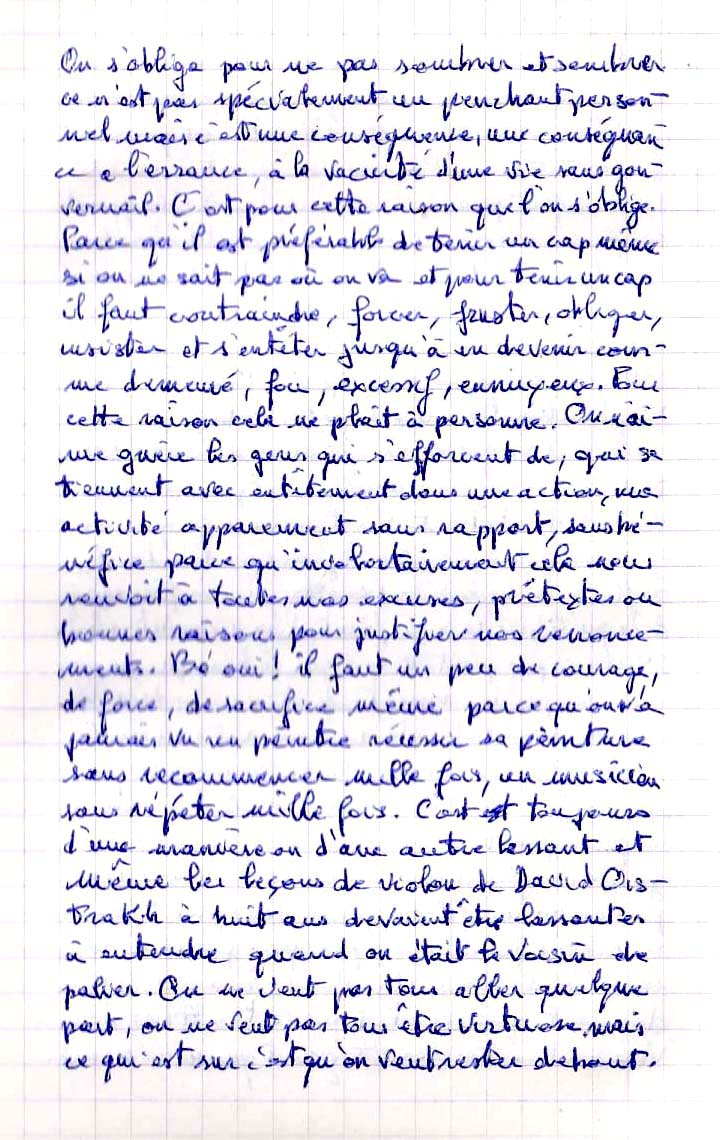 On s'oblige pour ne pas sombrer et sombrer
ce n'est pas spécialement un penchant person-
nel mais c'est une conséquence, une conséquen-
ce à l'errance, à la vacuité d'une vie sans gou-
vernail. C'est pour cette raison que l'on s'oblige.
Parce qu'il est préférable de tenir un cap même
si on ne sait pas où on va et pour tenir un cap
il faut contraindre, forcer, frustrer, obliger,
insister et s'entêter jusqu'à en devenir com-
me demeuré, fou, excessif, ennuyeux. Pour
cette raison cela ne plaît à personne. On n'ai-
me guère les gens qui s'efforcent de, qui se
tiennent avec entêtement dans une action, une
activité apparemment sans rapport, sans bé-
néfice parce qu'involontairement cela nous
renvoit à toutes nos excuses, prétextes ou
bonnes raisons pour justifier nos renonce-
ments. Bé oui! il faut un peu de courage,
de force, de sacrifice même parce qu'on n'a
jamais vu un peintre réussir sa peinture
sans recommencer mille fois, un musicien
sans répéter mille fois. C'est toujours
d'une manière ou d'une autre lassant et
même les leçons de violon de David Ois-
trakh à huit ans devaient être lassantes
à entendre quand on était le voisin de
palier. On ne veut pas tous aller quelque
part, on ne veut pas tous être virtuose, mais
ce qui est sur c'est qu'on veut rester debout.